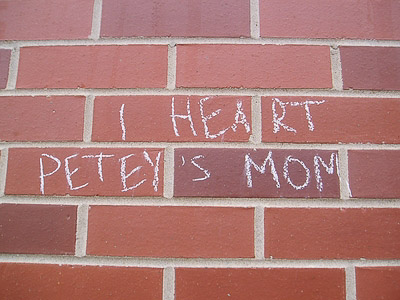 I HEART
PETEY'S MOM